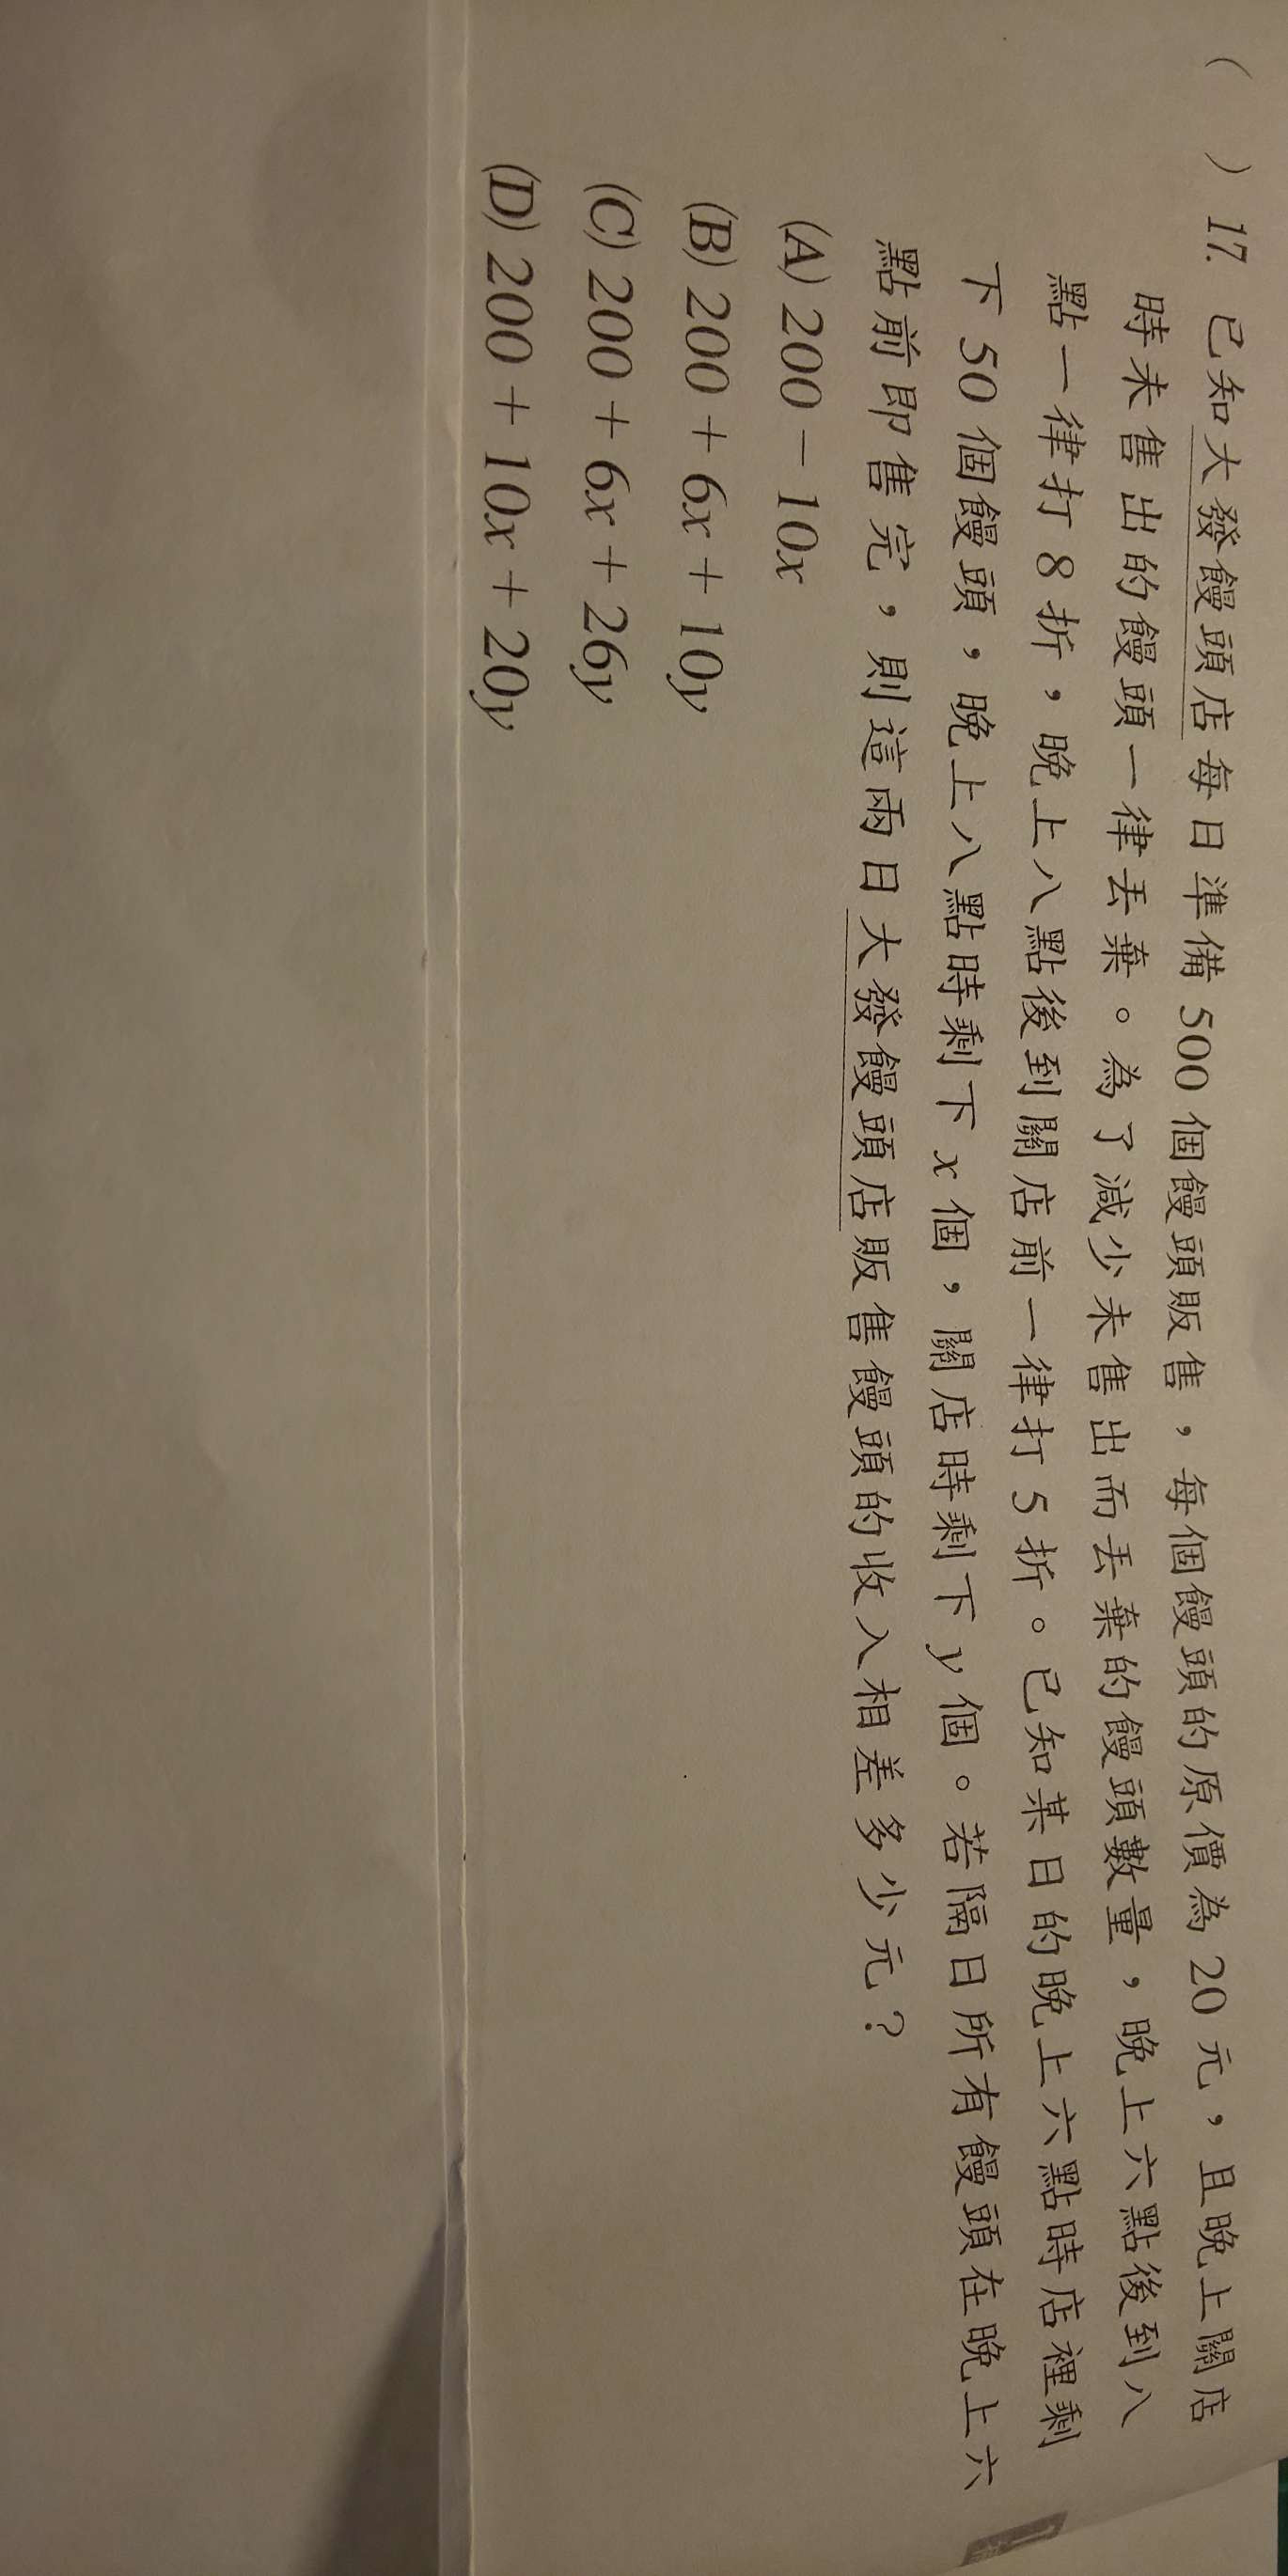 ( ) 17. 已知大發饅頭店每日準備 500 個饅頭販售，每個饅頭的原價為 20 元，且晚上關店
時未售出的饅頭一律丟棄。為了減少未售出而丟棄的饅頭數量，晚上六點後到八
點一律打 8 折，晚上八點後到關店前一律打 5 折。已知某日的晚上六點時店裡剩
下 50 個饅頭，晚上八點時剩下 x 個，關店時剩下 y 個。若隔日所有饅頭在晚上六
點前即售完，則這兩日大發饅頭店販售饅頭的收入相差多少元？
(A) 200 − 10x
(B) 200 + 6x + 10y
(C) 200 + 6x + 26y
(D) 200 + 10x + 20y